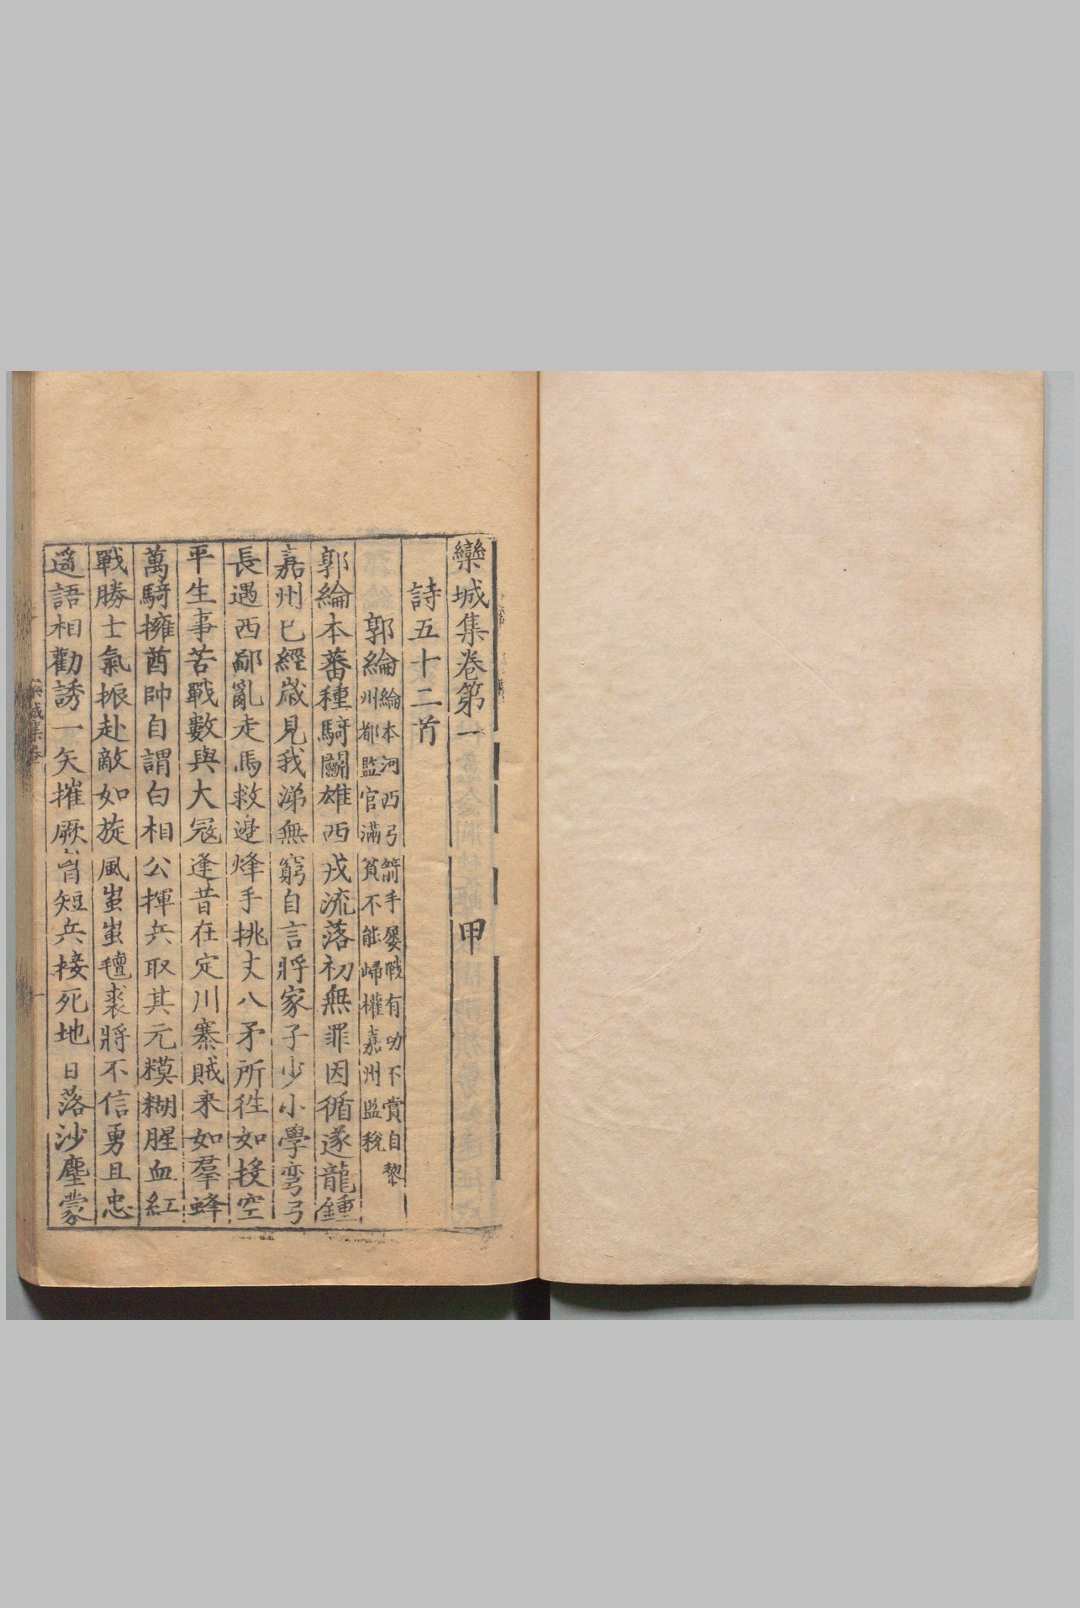 欒城集卷第一 甲
詩五十二首
郭綸 綸本河西弓箭手屢戰有功不賞自黎
州都監官滿貧不能歸權嘉州監稅
郭綸本蕃種騎鬬雄西戎流落初無罪因循遂龍鍾
嘉州已經歲見我涕無窮自言將家子少小學彎弓
長遇西鄙亂走馬救邊烽手挑丈八矛所徃如投空
平生事苦戰數與大冦逢昔在定川寨賊來如羣蜂
萬騎擁酋帥自謂白相公揮兵取其元糢糊腥血紅
戰勝士氣振赴敵如旋風蚩蚩氊裘將不信勇且忠
遥語相勸誘一矢摧厥胷短兵接死地日落沙塵蒙